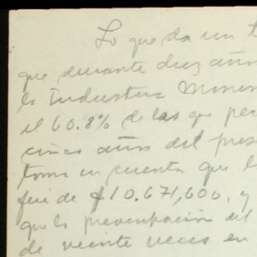 Lo que da un t
que durante diez años
la Industria Minera
el 60.8% de las que per
cinco años del pres
toma en cuenta que l
fué de $10.671,600, y
que la
de veinte veces en